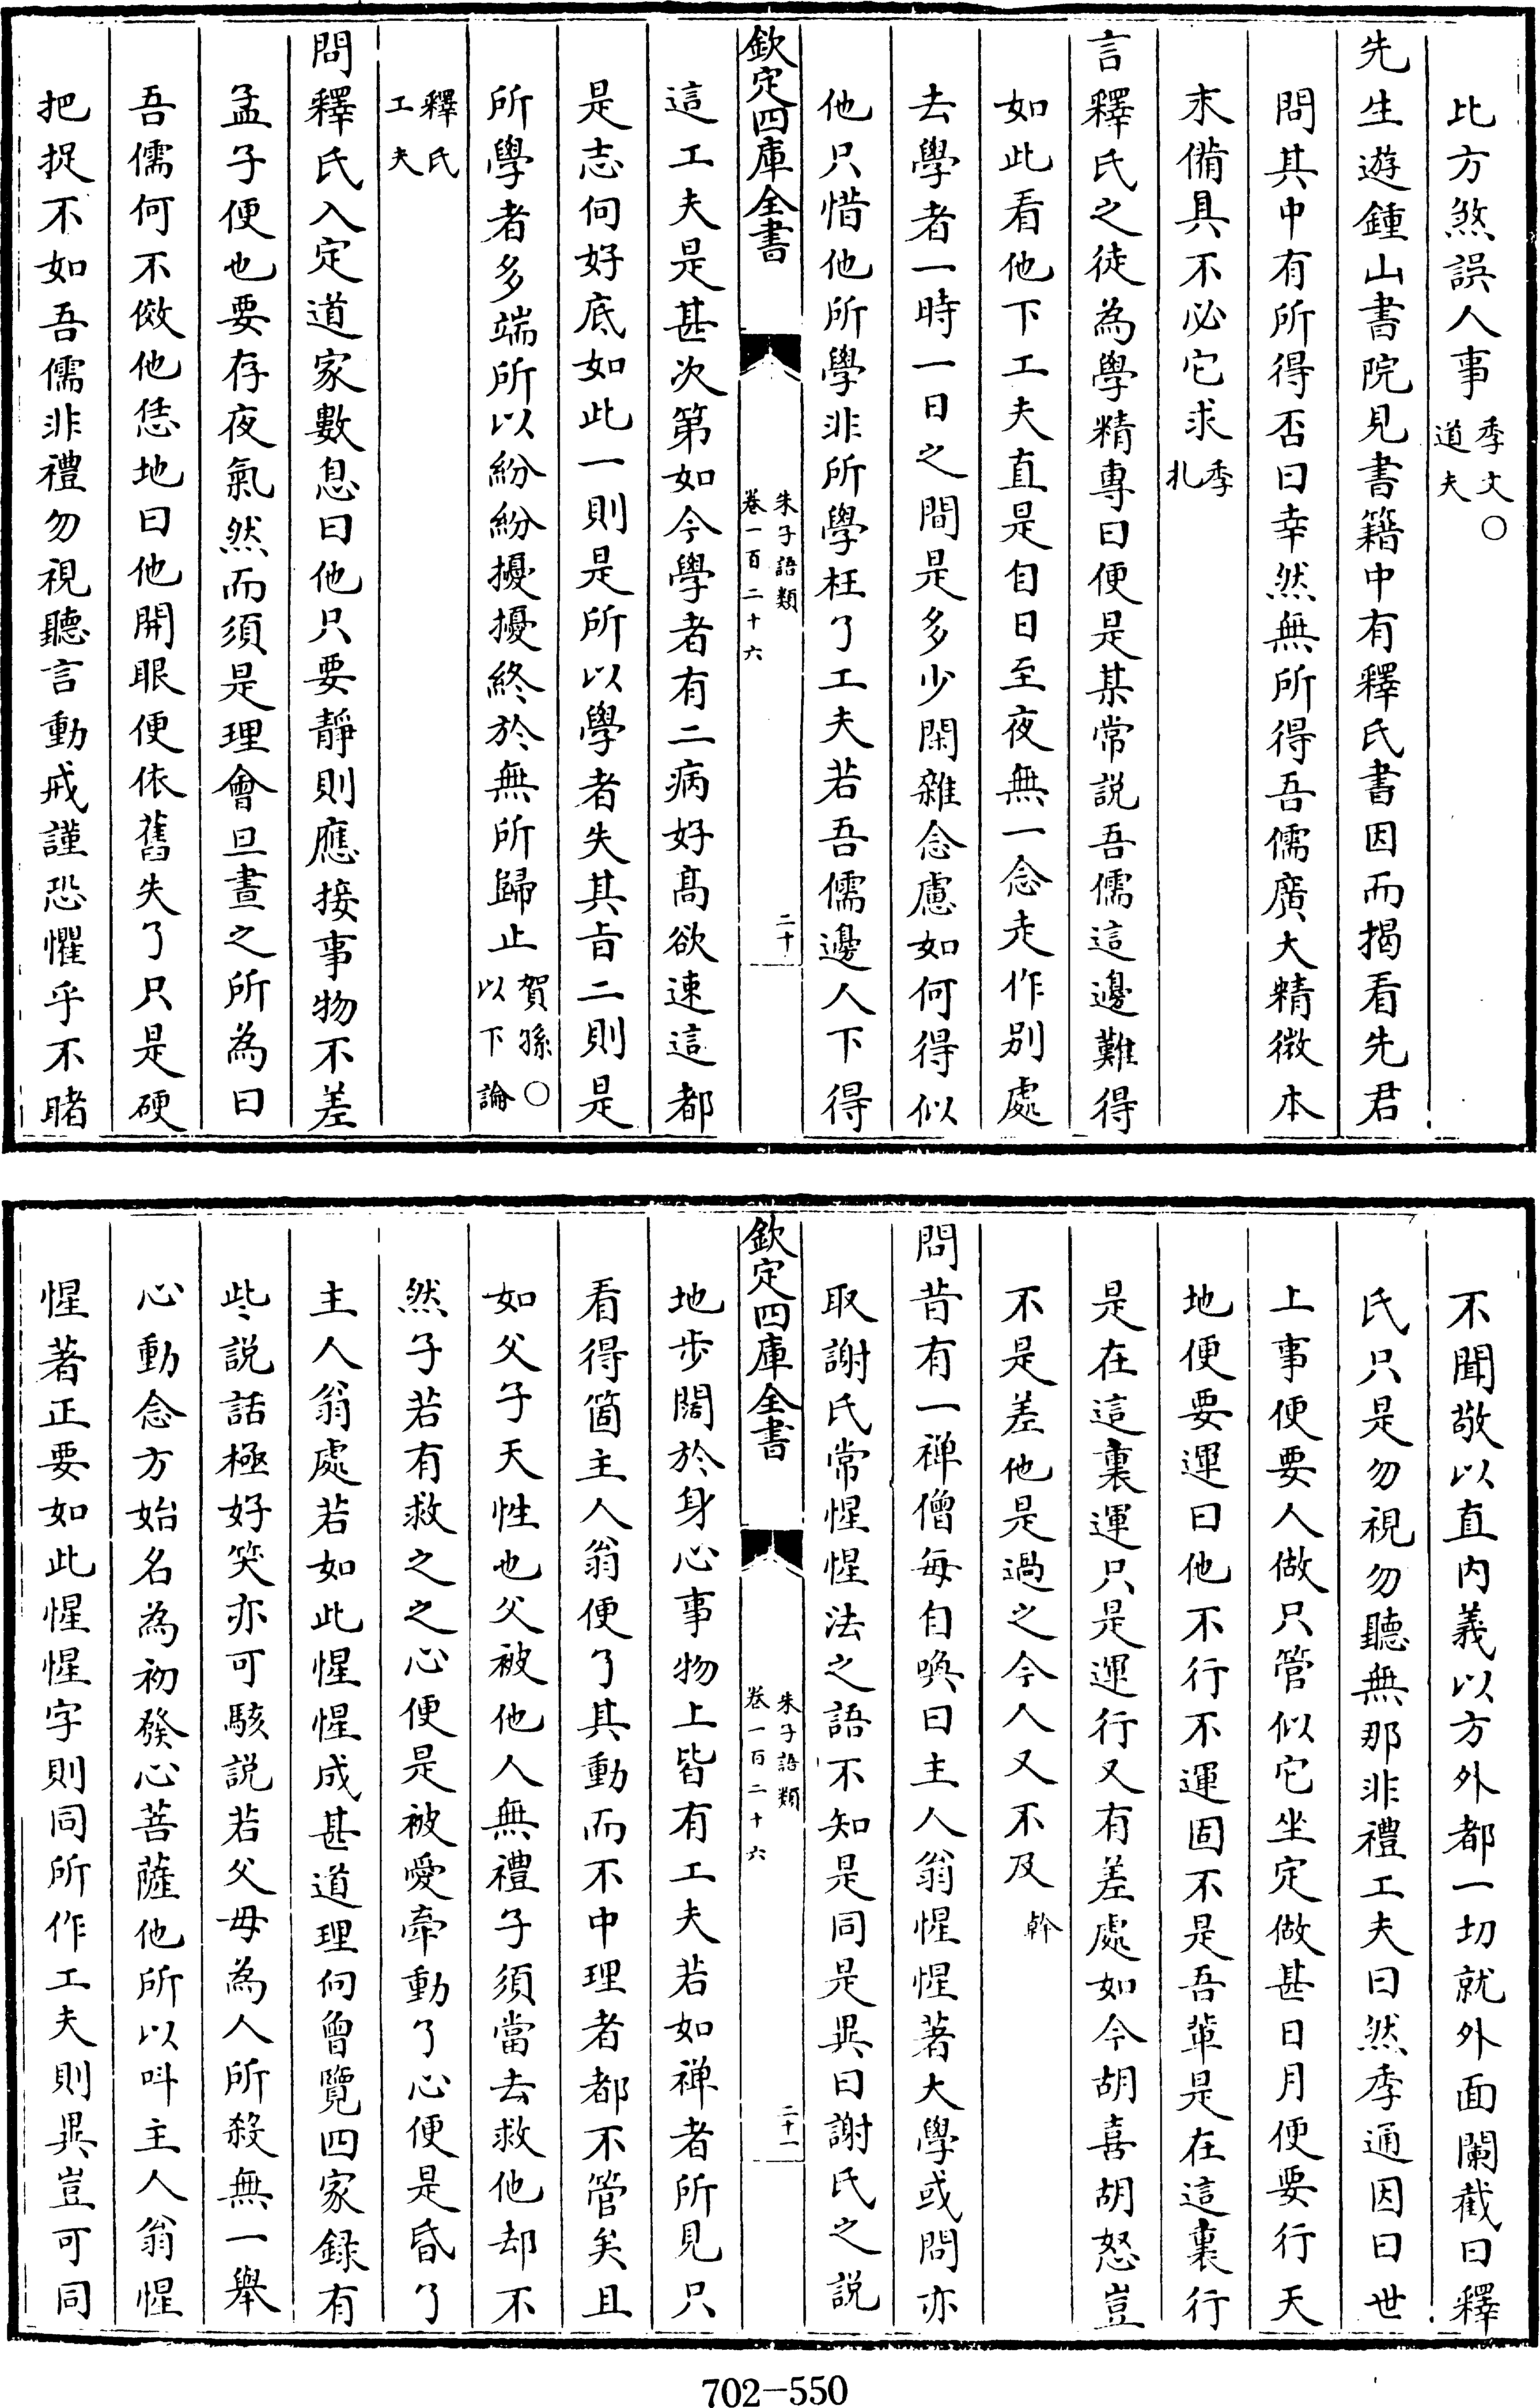 比方煞誤人事季文○道夫
先生遊鍾山書院見書籍中有釋氏書因而揭看先君
問其中有所得否曰幸然無所得吾儒廣大精微本
末備具不必它求季札
言釋氏之徒為學精專曰便是某常説吾儒這邊難得
如此看他下工夫直是自日至夜無一念走作别處
去學者一時一日之間是多少閑雜念慮如何得似
他只惜他所學非所學枉了工夫若吾儒邊人下得
欽定四庫全書
朱子語類
卷一百二十六
二十
這工夫是甚次第如今學者有二病好髙欲速這都
是志向好底如此一則是所以學者失其㫖二則是
所學者多端所以紛紛擾擾終於無所歸止賀孫○以下論
釋氏工夫
問釋氏入定道家數息曰他只要靜則應接事物不差
孟子便也要存夜氣然而須是理會旦晝之所為曰
吾儒何不倣他恁地曰他開眼便依舊失了只是硬
把捉不如吾儒非禮勿視聽言動戒謹恐懼乎不睹
不聞敬以直内義以方外都一切就外面闌截曰釋
氏只是勿視勿聽無那非禮工夫曰然季通因曰世
上事便要人做只管似它坐定做甚日月便要行天
地便要運曰他不行不運固不是吾輩是在這裏行
是在這裏運只是運行又有差處如今胡喜胡怒豈
不是差他是過之今人又不及榦
問昔有一禅僧每自喚曰主人翁惺惺著大學或問亦
取謝氏常惺惺法之語不知是同是異曰謝氏之説
欽定四庫全書
朱子語類
卷一百二十六
二十一
地步闊於身心事物上皆有工夫若如禅者所見只
看得箇主人翁便了其動而不中理者都不管矣且
如父子天性也父被他人無禮子須當去救他却不
然子若有救之之心便是被愛牽動了心便是昏了
主人翁處若如此惺惺成甚道理向曾覽四家録有
些説話極好笑亦可駭説若父母為人所殺無一舉
心動念方始名為初發心菩薩他所以叫主人翁惺
惺著正要如此惺惺字則同所作工夫則異豈可同
702-550